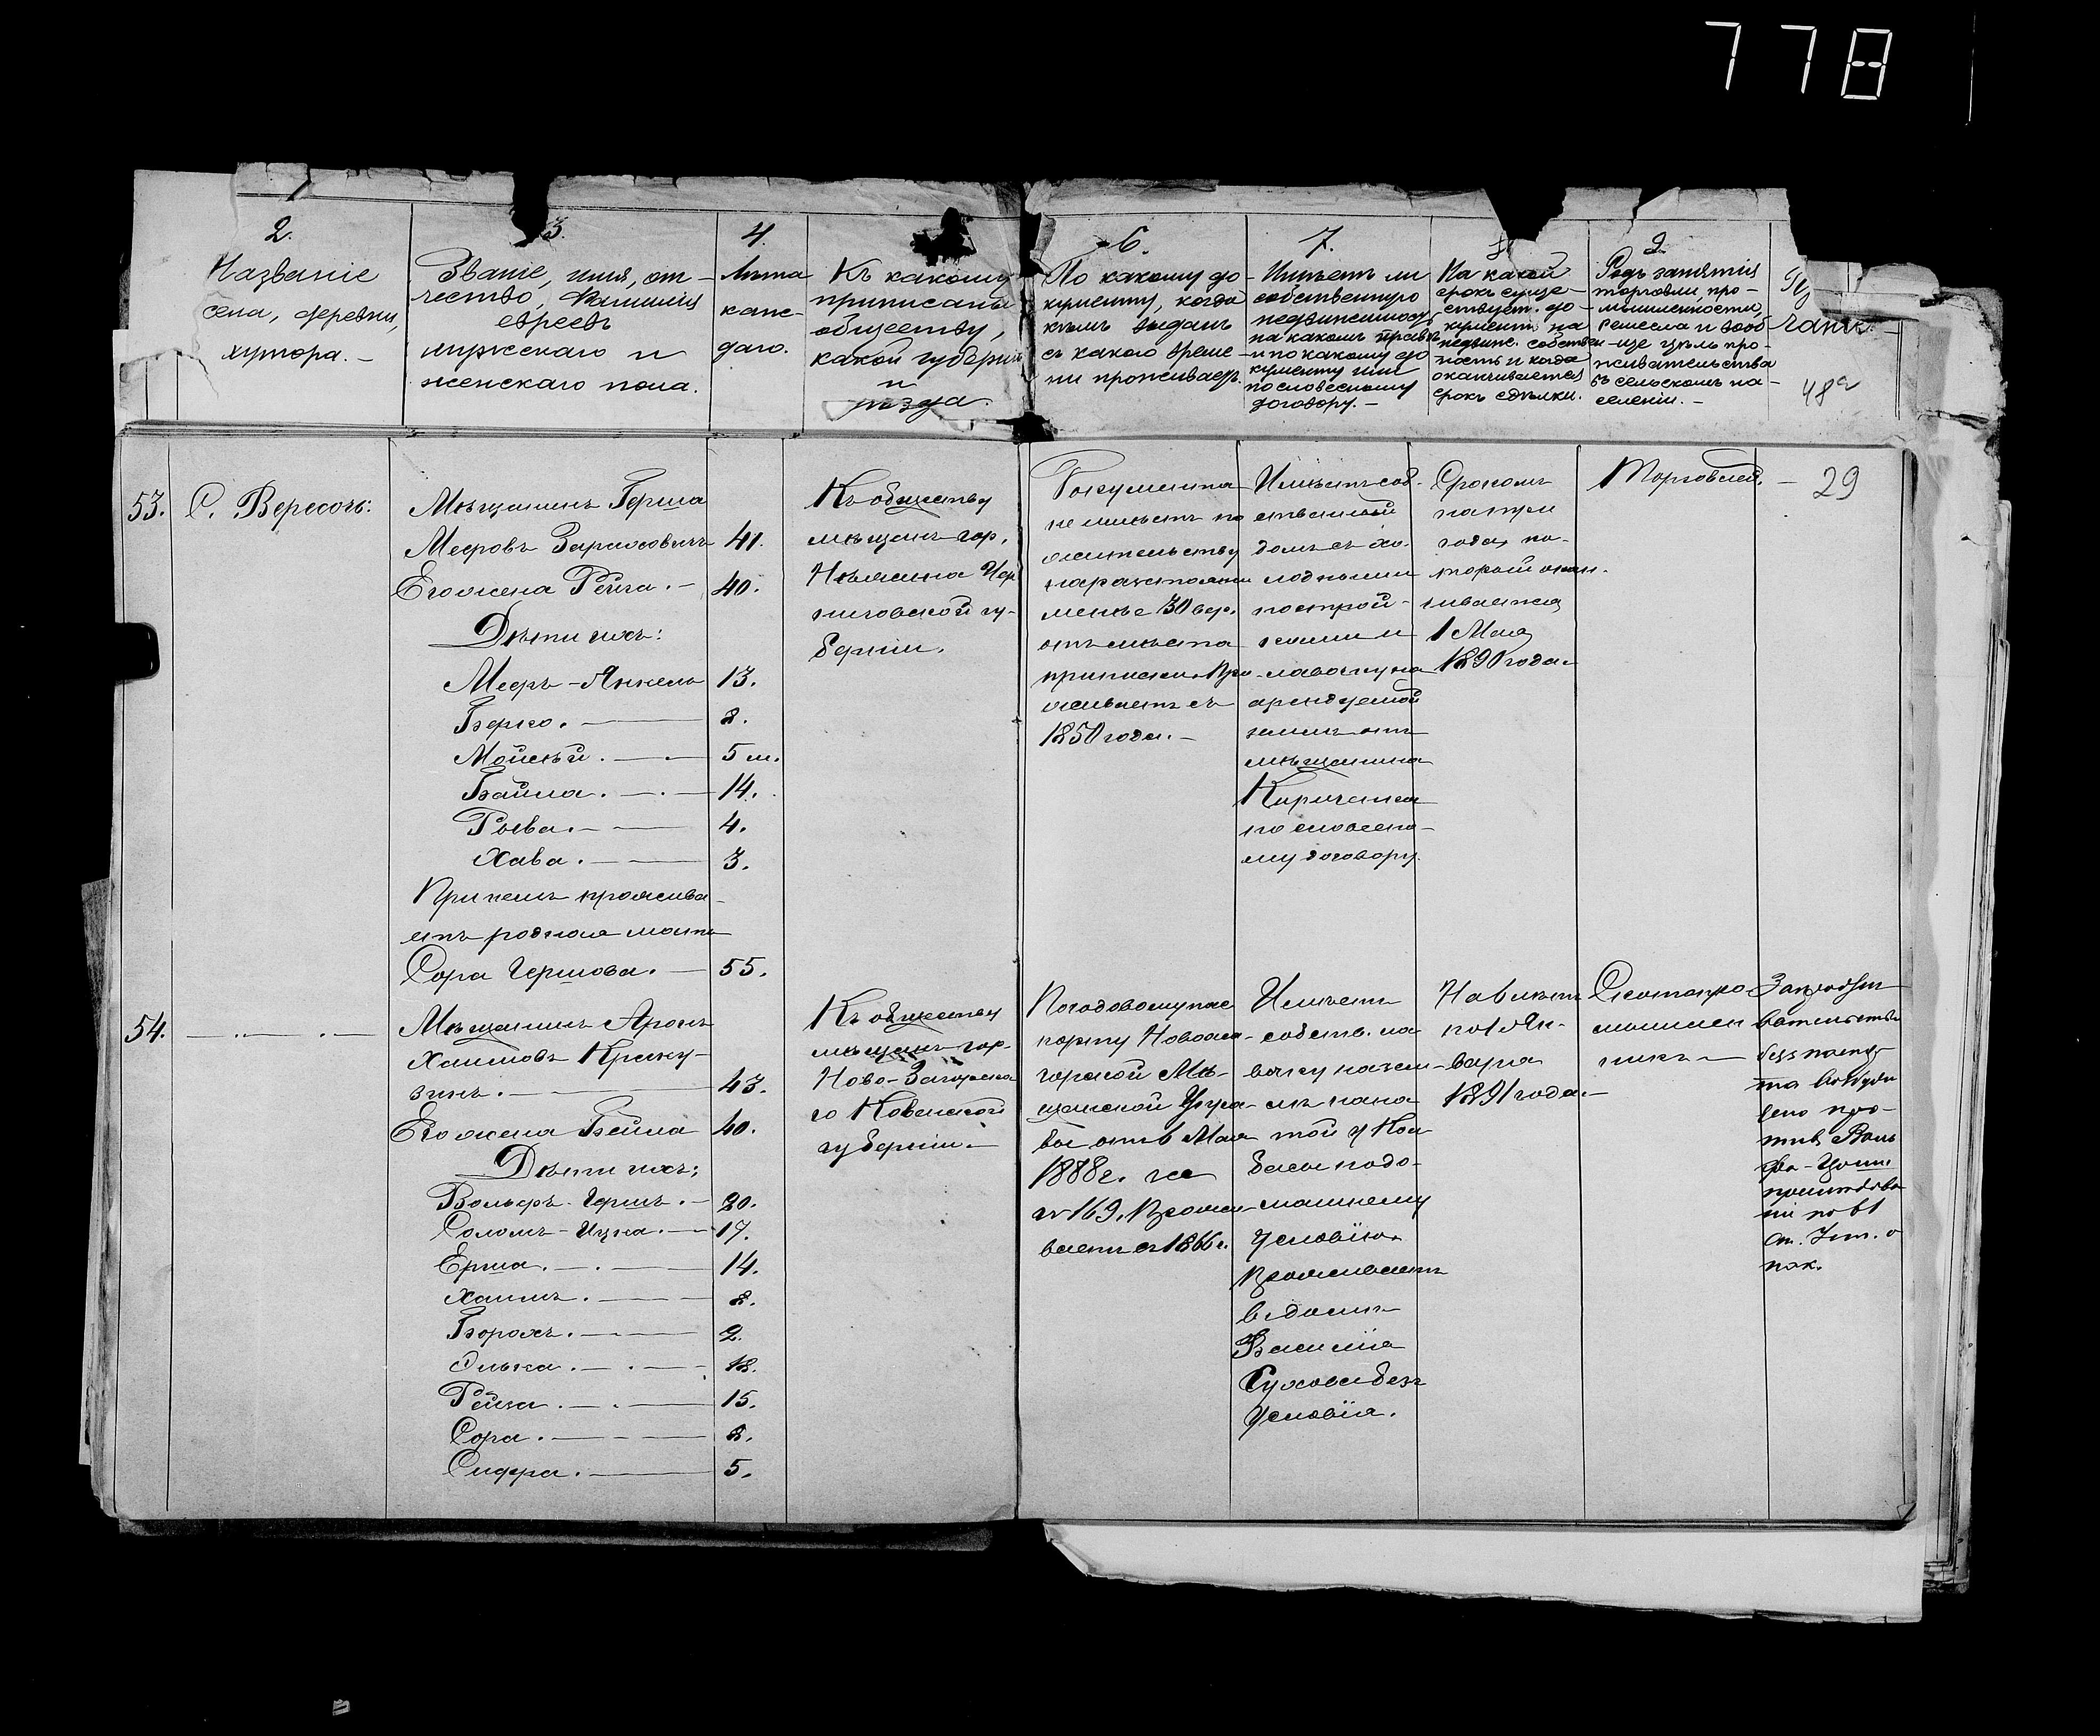 778
2.
Названіе
села, деревни,
хутора. –
3.
Званіе, имя, от-
чество, Фамилія
евреевъ
мужскаго и
женскаго пола.
4.
Лѣта
каж-
даго.
Къ какому
приписаны
обществу,
какой губерніи
и
уѣзда.
6.
По какому до-
кументу, когда
кѣмъ выданъ
съ какого време-
ни проживаетъ.
7.
Имѣетъ ли
собственную
недвижимость,
на какомъ правѣ
и по какому до
кументу или
по словесному
договору. –
На какой
срокъ суще-
ствуетъ до-
кументъ на
недвиж. собствен-
ность и когда
оканчивается
срокъ сдѣлки.
9.
Родъ занятія
торговли, про-
мышленности,
ремесла и вооб
ще цѣль про-
живательства
въ сельскомъ на-
селеніи. –
48а
53.
С. Вересочь:
Мѣщанинъ Герша
Меѳровъ 41.
Его жена Рейза. – 40.
Дѣти ихъ:
Меѳръ-Янкель 13.
Берко. – 8.
Мойсѣй. – 5 м.
Бейла. – 14.
Рыва. – 4.
Хава. – 3.
При немъ прожива-
етъ родная мать
Сора Гершова. – 55.
Къ обществу
мѣщанъ гор.
Нѣжина Чер
ниговской гу-
берніи.
Документа
не имѣетъ по
жительству
на разстояніи
менѣе 30 вер.
отъ мѣста
приписки. Про
живаетъ съ
1850 года. –
Имѣетъ соб-
ственный
домъ съ хо-
лодными
построй-
ками и
лавочку на
арендуемой
землѣ отъ
мѣщанина
Кириченка
по словесно-
му договору.
Срокомъ
на три
года, ко-
торый окан-
чивается
1 Мая
1890 года.
Торговлей. –
29
54.
Мѣщанинъ Аронъ
Хаимовъ
43.
Его жена Бейла 40.
Дѣти ихъ:
Вольфъ-Гершъ. – 20.
Соломъ-Ицка. – 17.
Ерша. – 14.
Хаимъ. – 8.
Борохъ. – 2.
Элька. – 18.
Рейза. – 15.
Сора. – 8.
Сифра. – 5.
Къ обществу
мѣщанъ гор.
Ново-
го Ковенской
губерніи. –
По годовому пас
порту
Мѣ-
щанской Упра-
вы отъ 6 Мая
1888 г. за
№ 169. Прожи-
ваетъ съ 1866 г.
Имѣетъ
собств. ла
вочку на зем-
лѣ
той у
по до-
машнему
условію.
Проживаетъ
въ домѣ
Василія
безъ
условія.
На 6 лѣтъ
по 1 Ян-
варя
1891 года. –
Скотопро-
мышлен
никъ –
безъ паспор-
та возбуж
дено про-
тивъ Воль
фа-
по 61
ст. Уст. о
нак.